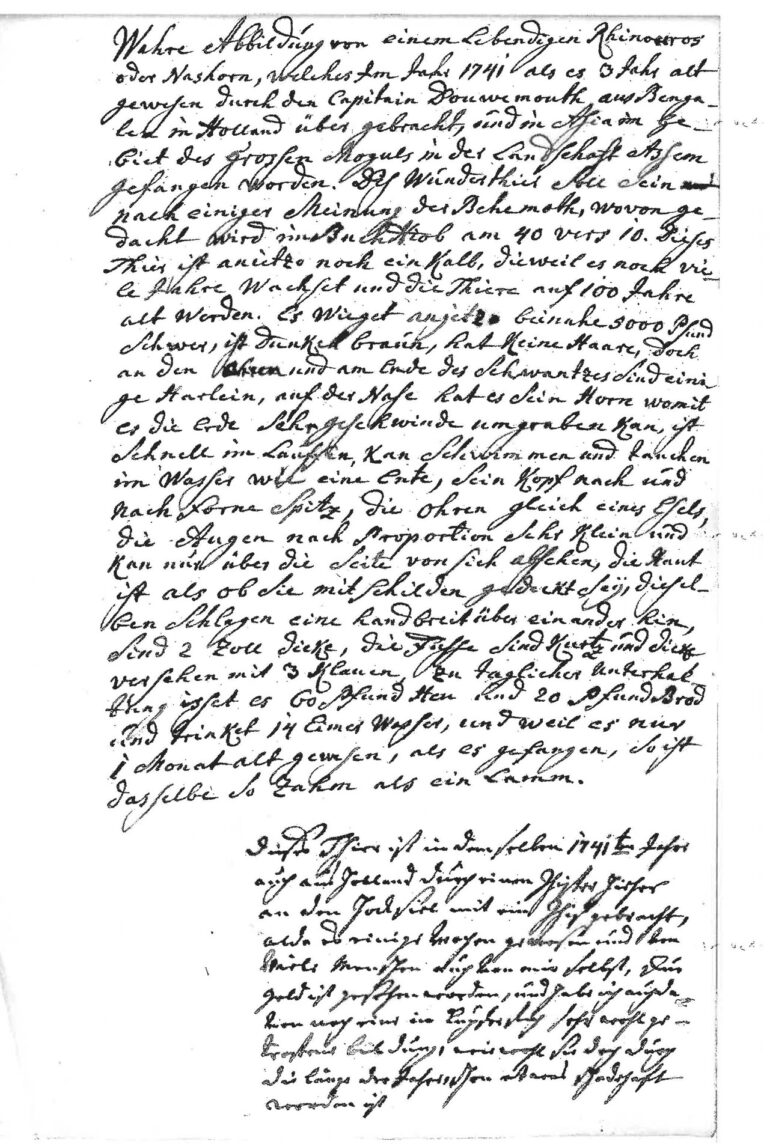 Wahre Abbildung von einem Lebendigen Rhinoceros
oder Nashorn, welches Im Jahr 1741 als es 3 Jahr alt
gewesen durch den Capitain Douwemouth aus Benga-
len in Holland über gebracht, und in Asia im Ge-
biet des Grossen Moguls in der Landschaft Assem
gefangen worden. Diß Wunderthier soll sein
nach einiger Meinung der Behemoth, wovon ge-
dacht wird im Buch Hiob am 40 vers 10. Dieses
Thier ist anietzo noch ein Kalb, dieweil es noch vie-
le Jahre Wachset und die Thiere auf 100 Jahre
alt Werden. Es Wieget anjetzo beinahe 5000 Pfund
Schwer, ist dunkel braun, hat Keine Haare, doch
an den Ohren und am Ende des Schwantzes sind eini
ge Harlein, auf der Nase hat es sein Horn womit
es die Erde Sehr geschwinde umgraben Kan, ist
Schnell im Lauffen, Kan Schwimmen und tauchen
im Wasser wie eine Ente, sein Kopf nach und
nach forne Spitz, die ohren gleich eines Esels,
die Augen nach Proportion Sehr Klein und
Kan nur über die Seite von sich absehen, die Haut
ist als ob sie mit Schilden gedeckt sey, diesel-
ben Schlagen eine handbreit über einander hin,
sind 2 Zoll dicke, die Füsse sind Kurtz und dicke
versehen mit 3 Klauen, Zu taglicher Unterhal
tung isset es 60 Pfund Heu und 20 Pfund Brod
und trinket 14 Eimer Wasser, und weil es nur
1 Monat alt gewesen, als es gefangen, so ist
dasselbe So Zahm als ein Lamm.
Dieses Thier ist in demselben 1741ten Jahre
auch aus Holland durch einen Schiffer hieher
an den Hocksiel mit ein Schif gebracht,
alda es einige wochen gewesen und von
viele Menschen auch von mir selbst, für
geld ist gesehen worden, und habe ich auch da-
von noch eine in Kupferstich sehr wohl ge-
troffene bildung, wiewohl sie doch durch
die länge der Jahre schon etwas schadhaft
worden ist